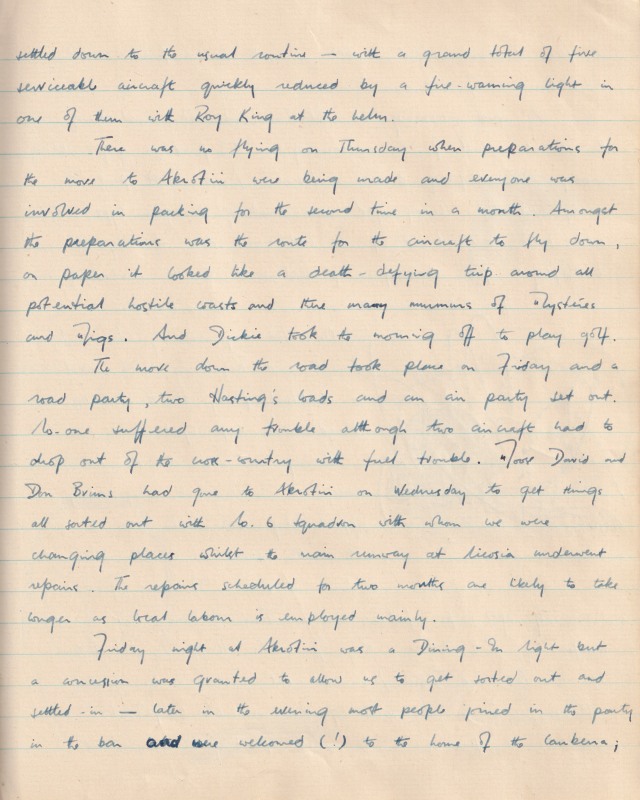 settled down to the usual routine — with a grand total of five
serviceable aircraft quickly reduced by a fire-warning light in
one of them with Roy King at the helm.
There was no flying on Thursday when preparations for
the move to Akrotiri were being made and everyone was
involved in packing for the second time in a month. Amongst
the preparations was the route for the aircraft to fly down,
on paper it looked like a death-defying trip around all
potential hostile coasts and there many murmurs of Mystères
and Migs. And Dickie took the morning off to play golf.
The move down the road took place on Friday and a
road party, two Hasting's loads and an air party set out.
No-one suffered any trouble although two aircraft had to
drop out of the cross-country with fuel trouble. David and
Don Brims had gone to Akrotiri on Wednesday to get things
all sorted out with No. 6 Squadron with whom we were
changing places whilst the main runway at Nicosia underwent
repairs. The repairs scheduled for two months are likely to take
longer as local labour is employed mainly.
Friday night at Akrotiri was a Dining-In Night but
a concession was granted to allow us to get sorted out and
settled-in — later in the evening most people joined in the party
in the bar and were welcomed (!) to the home of the Canberra;